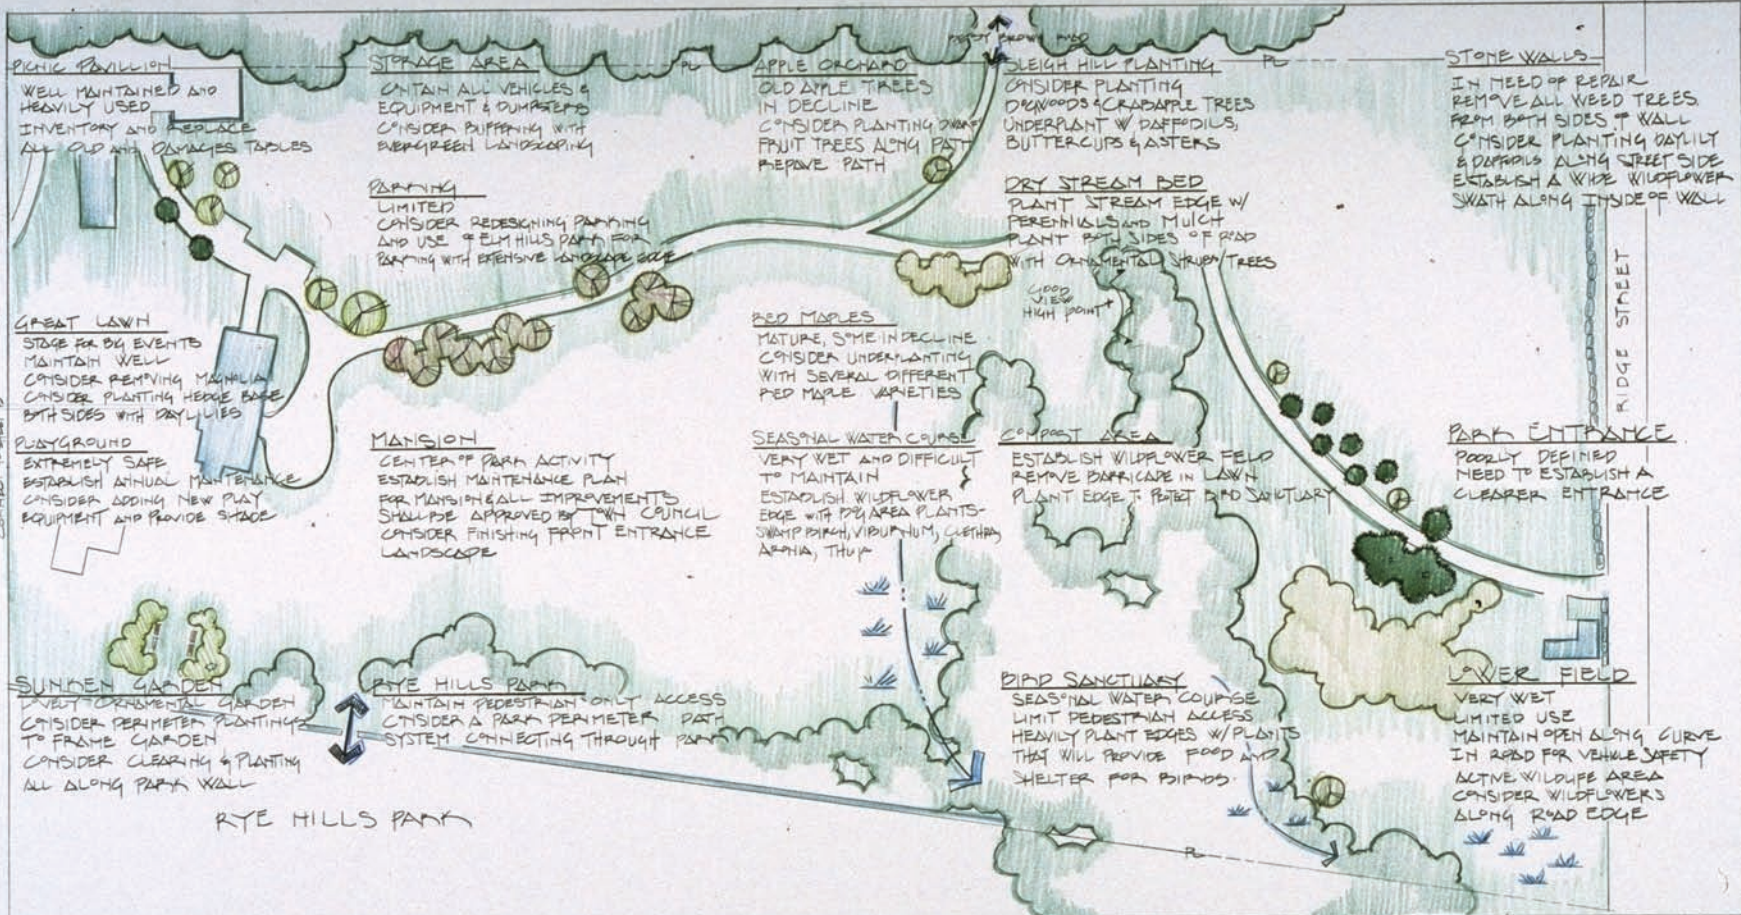 PICNIC PAVILLION
WELL MAINTAINED AND
HEAVILY USED
INVENTORY AND REPLACE
ALL OLD AND DAMAGES TABLES
STORAGE AREA
CONTAIN ALL VEHICLES &
EQUIPMENT & DUMPSTERS
CONSIDER BUFFERING WITH
EVERGREEN LANDSCAPING
PL
APPLE ORCHARD
OLD APPLE TREES
IN DECLINE
CONSIDER PLANTING DWARF
FRUIT TREES ALONG PATH
REPAVE PATH
BROWN ROAD
SLEIGH HILL PLANTING
CONSIDER PLANTING
DOGWOODS & CRABAPPLE TREES
UNDERPLANT W/ DAFFODILS,
BUTTERCUPS & ASTERS
PL
STONE WALLS
IN NEED OF REPAIR
REMOVE ALL WEED TREES
FROM BOTH SIDES OF WALL
CONSIDER PLANTING DAYLILY
& DAFFODILS ALONG STREET SIDE
ESTABLISH A WIDE WILDFLOWER
SWATH ALONG INSIDE OF WALL
PARKING
LIMITED
CONSIDER REDESIGNING PARKING
AND USE OF ELM HILLS PARK FOR
PARKING WITH EXTENSIVE LANDSCAPE EDGE
DRY STREAM BED
PLANT STREAM EDGE W/
PERENNIALS AND MULCH
PLANT BOTH SIDES OF ROAD
WITH ORNAMENTAL SHRUBS/TREES
GOOD
VIEW
HIGH POINT
RIDGE STREET
GREAT LAWN
STAGE FOR BIG EVENTS
MAINTAIN WELL
CONSIDER REMOVING MAGNOLIA
CONSIDER PLANTING HEDGE BASE
BOTH SIDES WITH DAYLILIES
RED MAPLES
MATURE, SOME IN DECLINE
CONSIDER UNDERPLANTING
WITH SEVERAL DIFFERENT
RED MAPLE VARIETIES
PLAYGROUND
EXTREMELY SAFE
ESTABLISH ANNUAL MAINTENANCE
CONSIDER ADDING NEW PLAY
EQUIPMENT AND PROVIDE SHADE
MANSION
CENTER OF PARK ACTIVITY
ESTABLISH MAINTENANCE PLAN
FOR MANSION & ALL IMPROVEMENTS
SHALL BE APPROVED BY TOWN COUNCIL
CONSIDER FINISHING FRONT ENTRANCE
LANDSCAPE
SEASONAL WATER COURSE
VERY WET AND DIFFICULT
TO MAINTAIN
ESTABLISH WILDFLOWER
EDGE WITH BOG AREA PLANTS-
SWAMP BIRCH, VIBURNUM, CLETHRA,
ARONIA, THUJA
COMPOST AREA
ESTABLISH WILDFLOWER FIELD
REMOVE BARRICADE IN LAWN
PLANT EDGE TO PROTECT BIRD SANCTUARY
PARK ENTRANCE
POORLY DEFINED
NEED TO ESTABLISH A
CLEARER ENTRANCE
SUNKEN GARDEN
LOVELY ORNAMENTAL GARDEN
CONSIDER PERIMETER PLANTINGS
TO FRAME GARDEN
CONSIDER CLEARING & PLANTING
ALL ALONG PARK WALL
RYE HILLS PARK
MAINTAIN PEDESTRIAN ONLY ACCESS
CONSIDER A PARK PERIMETER PATH
SYSTEM CONNECTING THROUGH PARK
BIRD SANCTUARY
SEASONAL WATER COURSE
LIMIT PEDESTRIAN ACCESS
HEAVILY PLANT EDGES W/ PLANTS
THAT WILL PROVIDE FOOD AND
SHELTER FOR BIRDS.
LOWER FIELD
VERY WET
LIMITED USE
MAINTAIN OPEN ALONG CURVE
IN ROAD FOR VEHICLE SAFETY
ACTIVE WILDLIFE AREA
CONSIDER WILDFLOWERS
ALONG ROAD EDGE
RYE HILLS PARK
PL